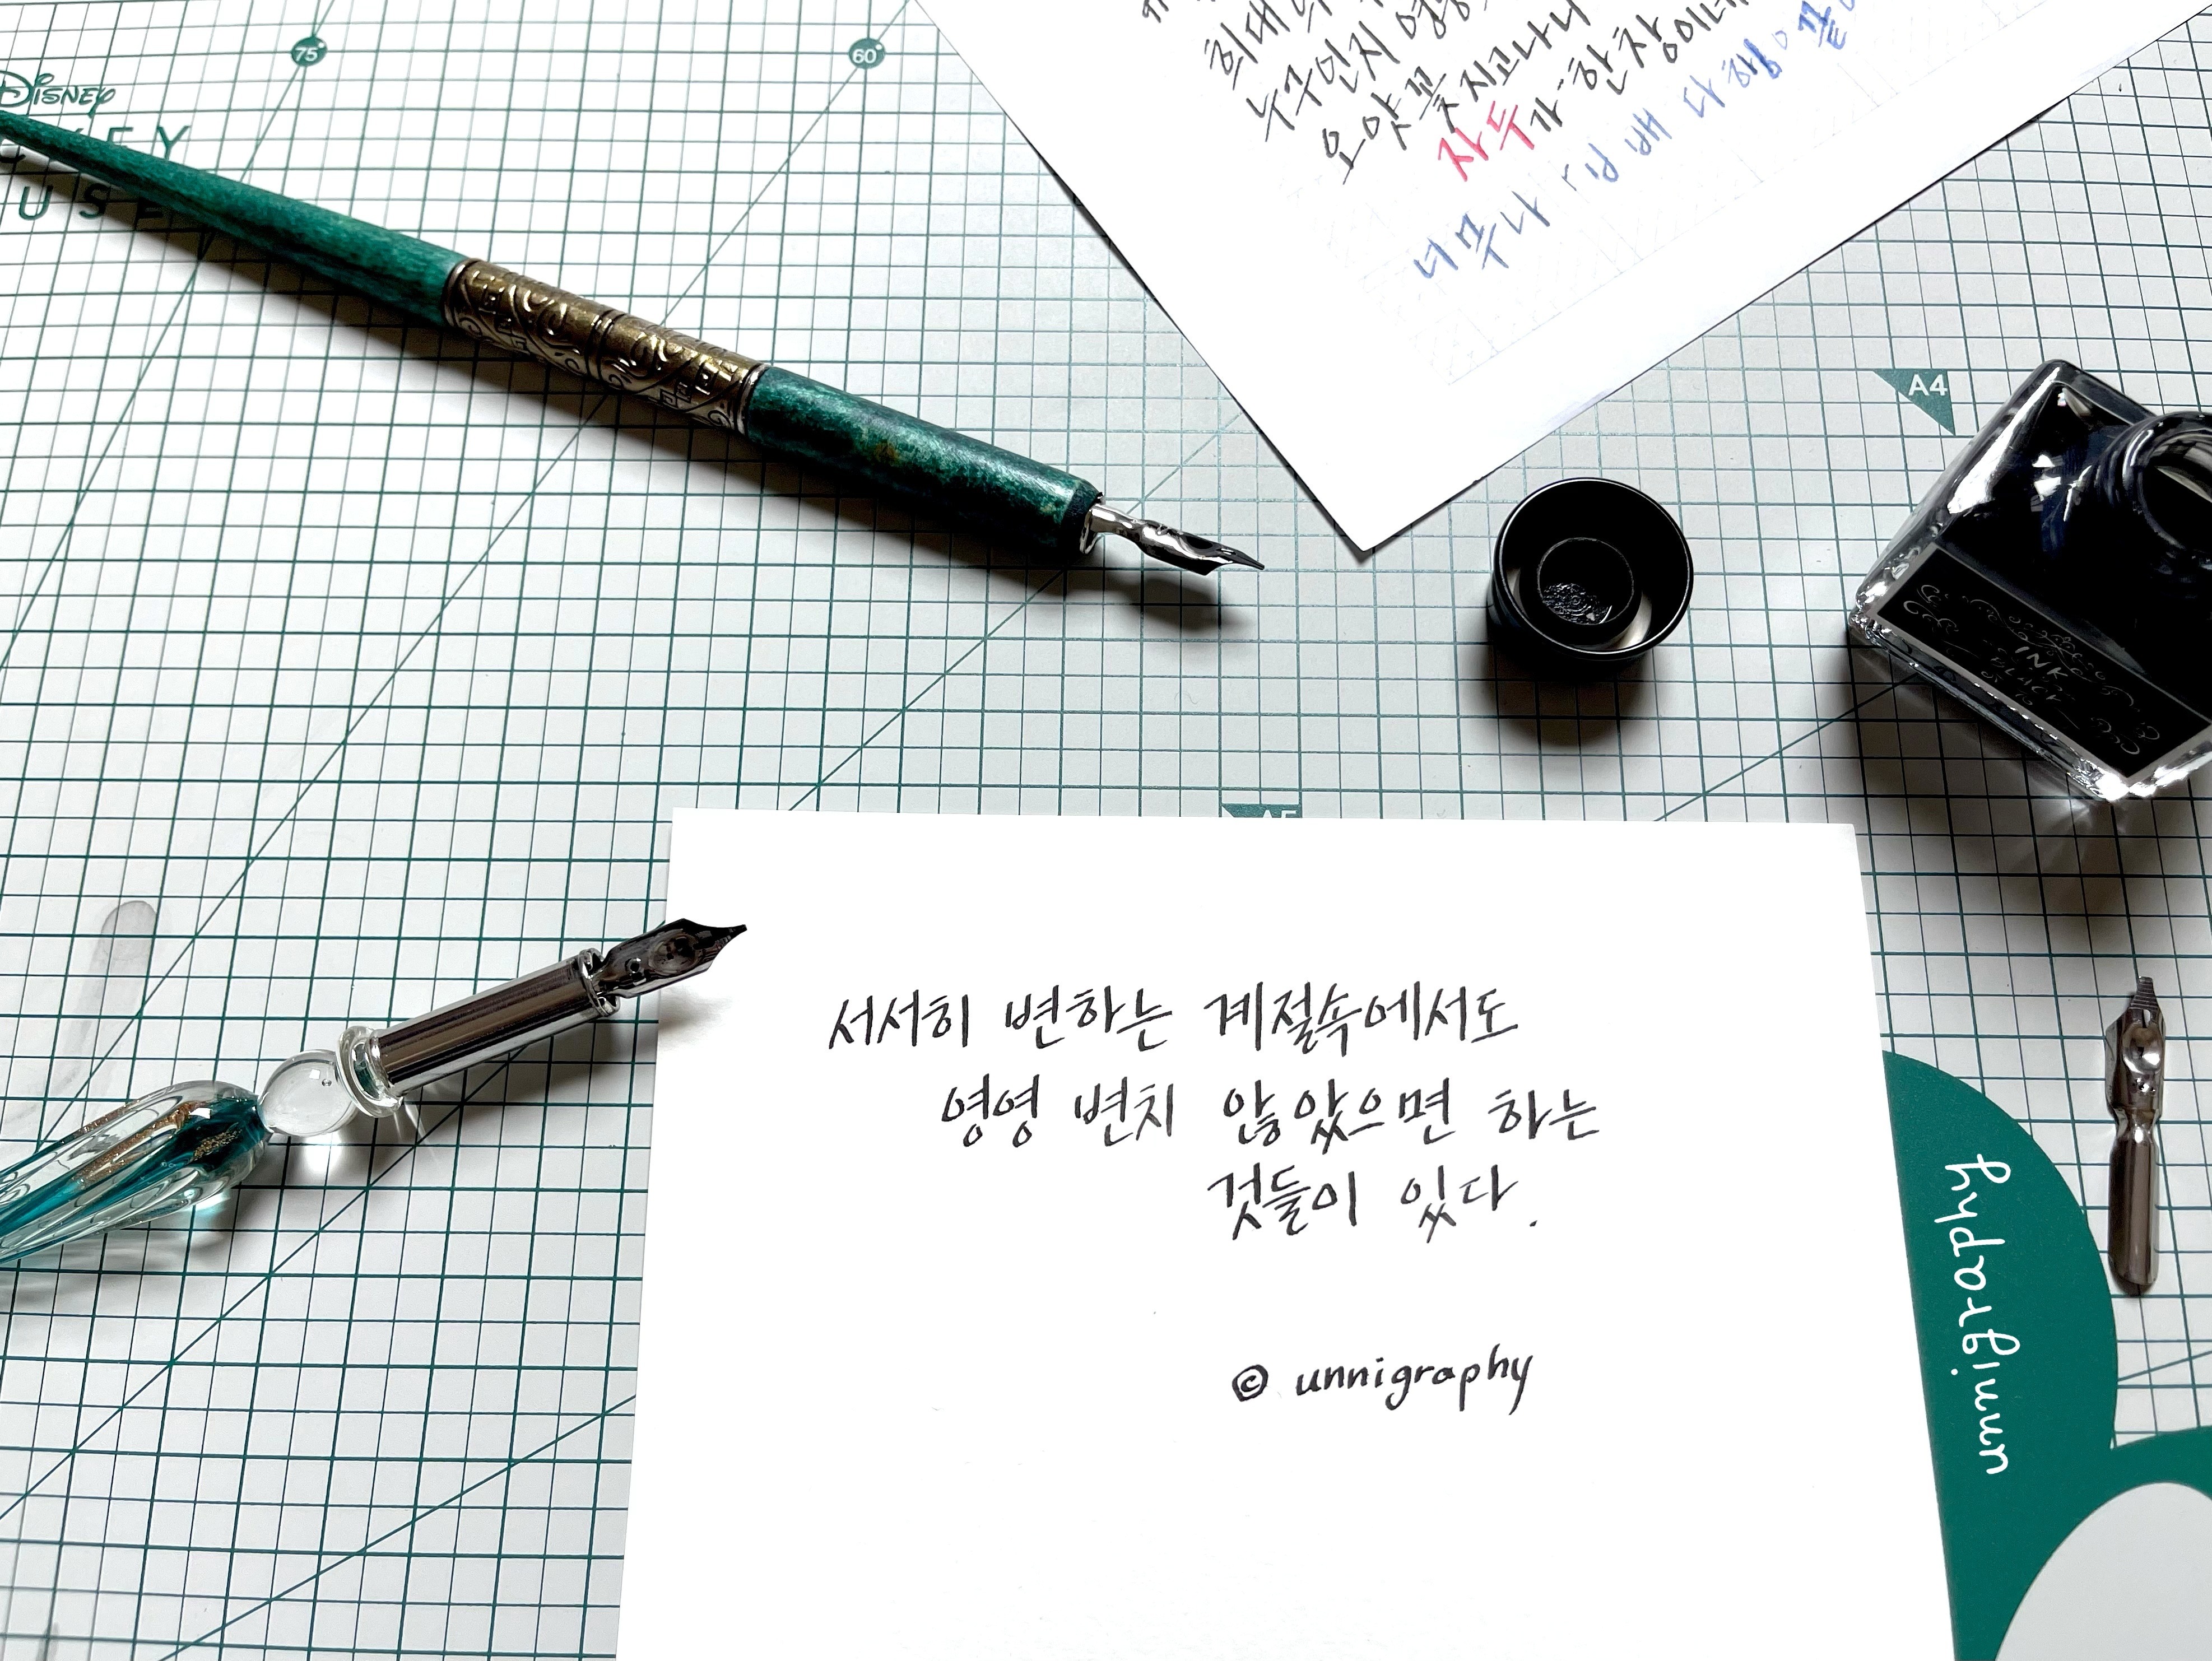 75°
60°
DISNEY
USE
희대의
누구인지
오얏꽃 지고나니
자두가 한창이네
너무나
A4
INK
BLACK
A5
서서히 변하는 계절속에서도
영영 변치 않았으면 하는
것들이 있다.
© unnigraphy
unnigraphy